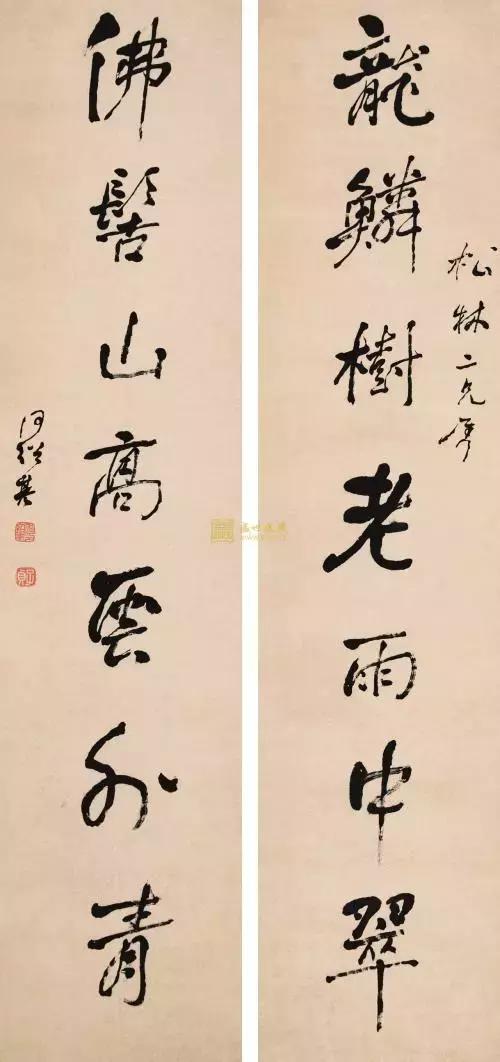 松林二兄屬
龍鱗樹老雨中翠
佛髻山高雲外青
何紹基